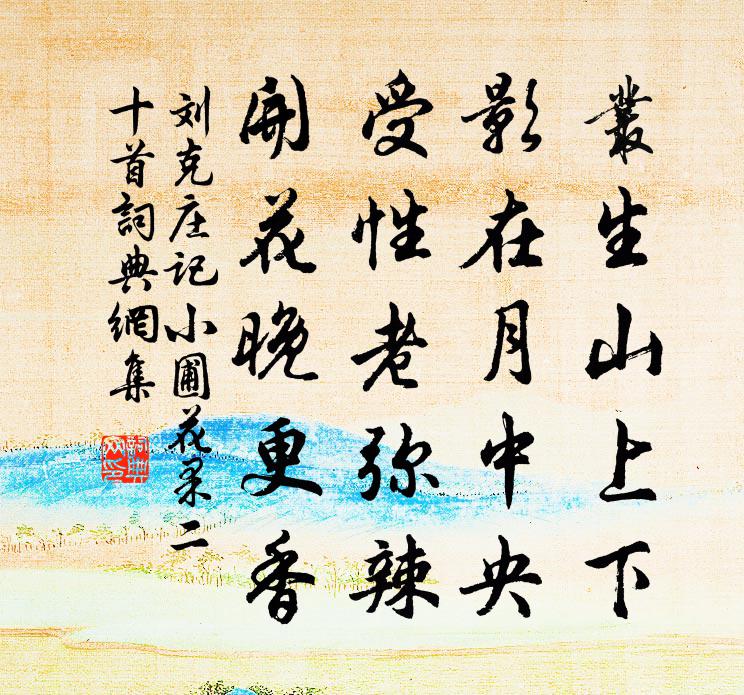 叢生山上下
影在月中央
受性老弥辣
開花晚更香
刘克庄记小圃花果二
十首詞典網集